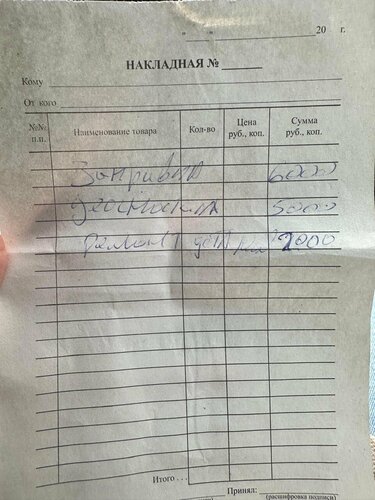 " " 20 г.
НАКЛАДНАЯ №
Кому
От кого
№№ п.п. Наименование товара Кол-во Цена руб., коп. Сумма руб., коп.
Заправка 6000
Диагностика 5000
Ремонт 2000
Итого . . .
Принял:
(расшифровка подписи)